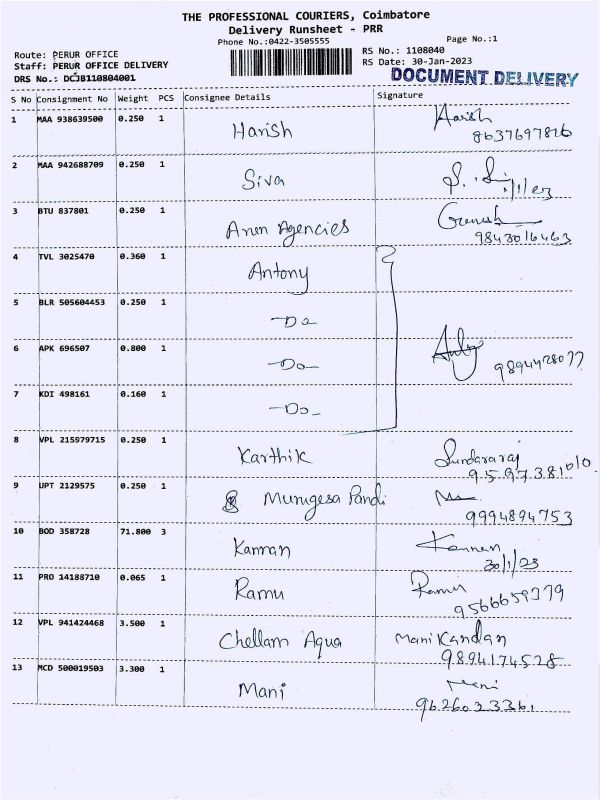 THE PROFESSIONAL COURIERS, Coimbatore
Delivery Runsheet - PRR
Phone No.:0422-3505555
Page No.:1
Route: PERUR OFFICE
Staff: PERUR OFFICE DELIVERY
DRS No.: DCJB110804001
RS No.: 1108040
RS Date: 30-Jan-2023
DOCUMENT DELIVERY
S No Consignment No Weight PCS Consignee Details Signature
1 MAA 938639500 0.250 1 Harish Harish
8637697816
2 MAA 942688709 0.250 1 Siva
3 BTU 837801 0.250 1 Arun Agencies Ganesh
9843016463
4 TVL 3025470 0.360 1 Antony
5 BLR 505604453 0.250 1 -Do-
6 APK 696507 0.800 1 -Do- 9894428077
7 KDI 498161 0.160 1 -Do-
8 VPL 215979715 0.250 1 Karthik Sundararaj
9597381010.
9 UPT 2129575 0.250 1 Murugesa Pandi
9994894753
10 BOD 358728 71.800 3 Kannan Kannan
30/1/23
11 PRO 14188710 0.065 1 Ramu Ramu
9566659379
12 VPL 941424468 3.500 1 Chellam Aqua Mani Kandan
9894174528
13 MCD 500019503 3.300 1 Mani Mani
9626033361